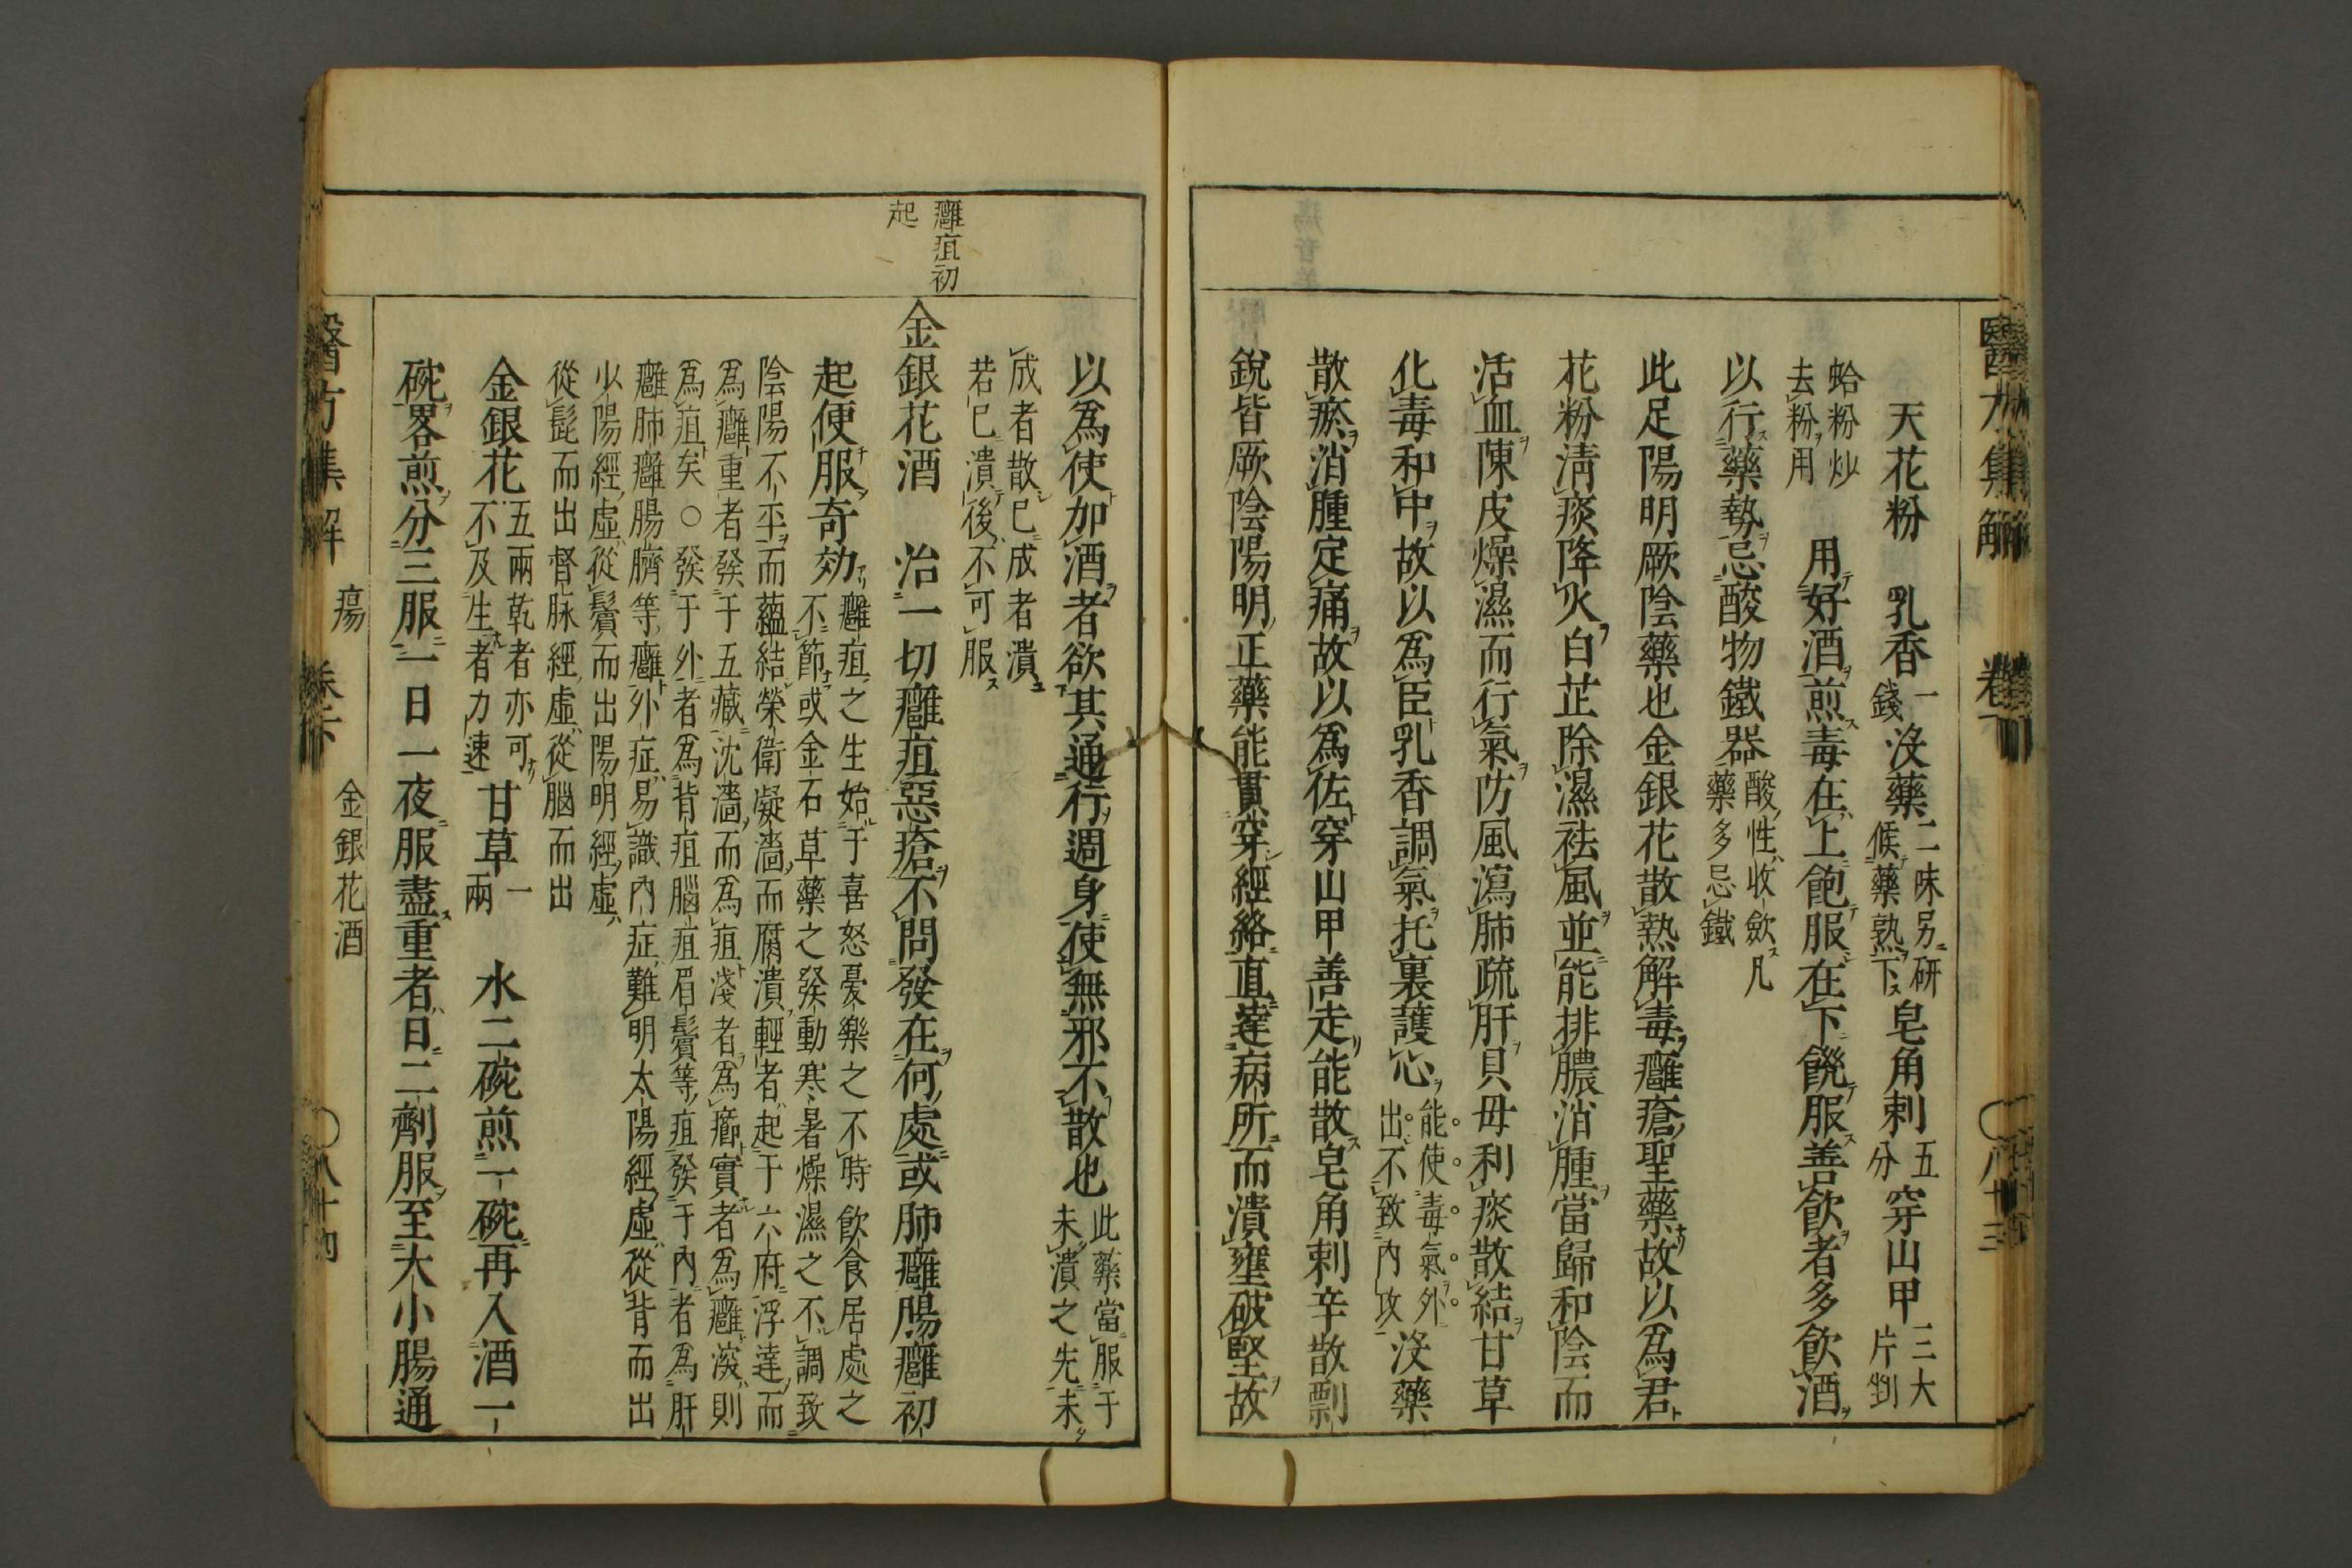 天花粉　乳香一錢　沒藥二味另研候藥熟下　皂角刺五分　穿山甲三大片剉
蛤粉炒去粉用　用好酒煎毒在上飽服在下饑服善飲者多飲酒
以行藥勢忌酸物鐵器酸性收歛凡藥多忌鐵
此足陽明厥陰藥也金銀花散熱解毒癰瘡聖藥故以爲君
花粉淸痰降火白芷除濕祛風並能排膿消腫當歸和陰而
活血陳皮燥濕而行氣防風瀉肺疏肝貝母利痰散結甘草
化毒和中故以爲臣乳香調氣托裏護心能使毒氣外出不致內攻沒藥
散瘀消腫定痛故以爲佐穿山甲善走能散皂角刺辛散剽
銳皆厥陰陽明正藥能貫穿經絡直達病所而潰壅破堅故
以爲使加酒者欲其通行週身使無邪不散也此藥當服于未潰之先未
成者散已成者潰若已潰後不可服
癰疽初起
金銀花酒　治一切癰疽惡瘡不問發在何處或肺癰腸癰初
起便服奇効癰疽之生始于喜怒憂樂之不時飮食居處之
不節或金石草藥之發動寒暑燥濕之不調致
陰陽不平而蘊結榮衛凝濇而腐潰輕者起于六府浮達而
爲癰重者發于五藏沈濇而爲疽淺者爲癤實者爲癰深則
爲疽矣〇發于外者爲背疽腦疽眉鬢等疽發于内者爲肝
癰肺癰腸臍等癰外症易識內症難明太陽經虛從背而出
少陽經虛從鬢而出陽明經虛
從髭而出督脉經虛從腦而出
金銀花五兩乾者亦可不及生者力速　甘草一兩　水二碗煎一碗再入酒一
碗畧煎分三服一日一夜服盡重者日二劑服至大小腸通
醫方集解　瘍　卷下　金銀花酒　〇八十四